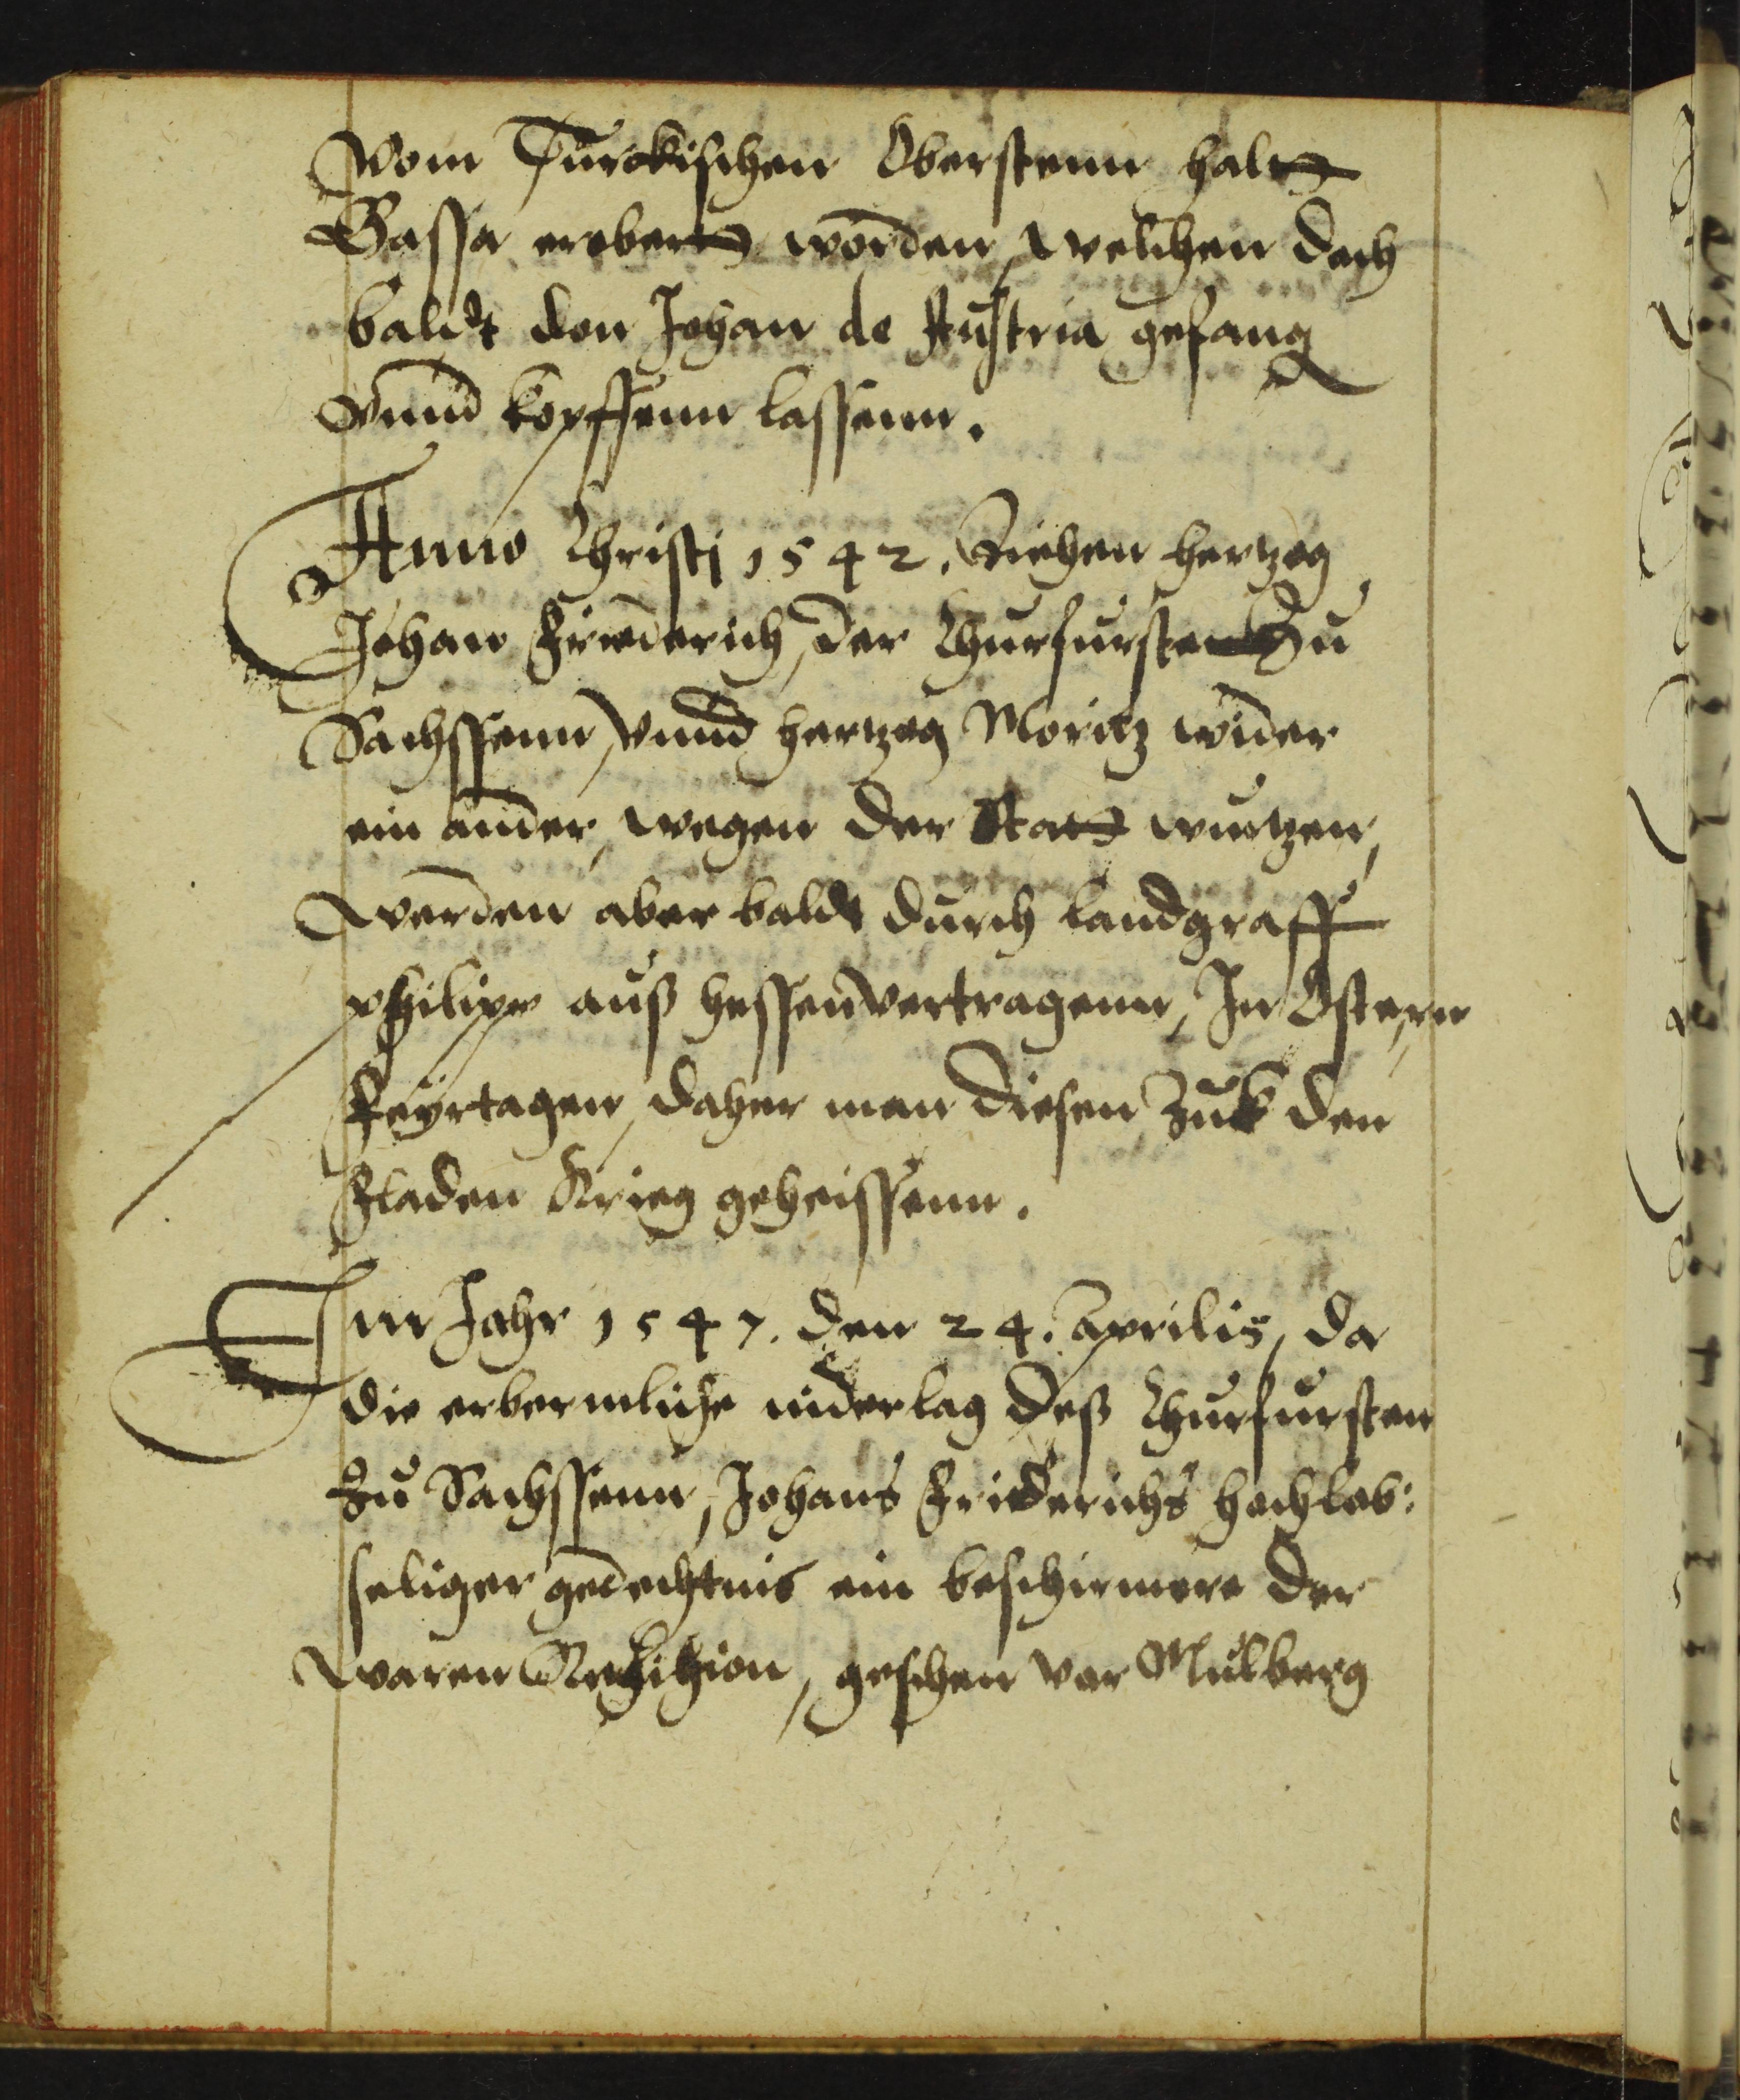 Vom Turckischen Oberstenn hali
Bassa erobertt worden, welchen doch
baldt don Johan de Austria gefang
Vnnd kopffenn lassenn.
Anno Christj 1542. Ziehen hertzog
Johan Friederich, der Churfurste Zu
Sachssenn, Vnnd hertzog Moritz wider
ein ander, wegen der Statt wurtzen,
werden aber baldt durch landgraff
philips auß hessen vertragenn, In Ostern
feyrtagen, daher man diesen Zuk den
fladen Krieg geheissenn.
Im Jahr 1547. den 24. Aprilis, da
die erbermliche niderlag deß Churfursten
Zu Sachssenn, Johans Friderichs hochlob:
seliger gedechtnis ein beschirmere der
waren Religion, geschen vor Mulberg